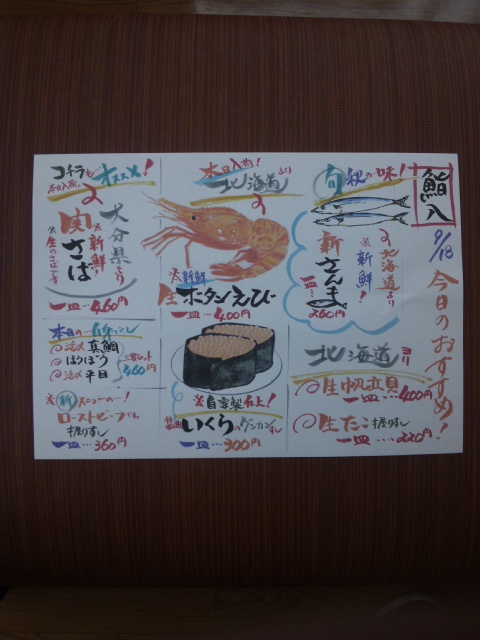 9/18
今日のおすすめ!
旬 秋の味!
北海道より
※新鮮!
新さんま
一皿…260円
北海道ヨリ
生帆立貝
一皿…400円
生たこ握りずし
一皿……220円
本日入荷!
北海道より
※新鮮
生ボタンえび
一皿…400円
※自家製仕上!
いくらのグンカンずし
一皿…300円
コチラもオススメ!
本日入荷
大分県より
関さば
※新鮮!
※生のさばです
一皿…460円
本日の…白身づくし
活〆真鯛
ほうぼう
活〆平目
三貫セット
460円
※新メニューの…!
ローストビーフの
握りずし
一皿…360円